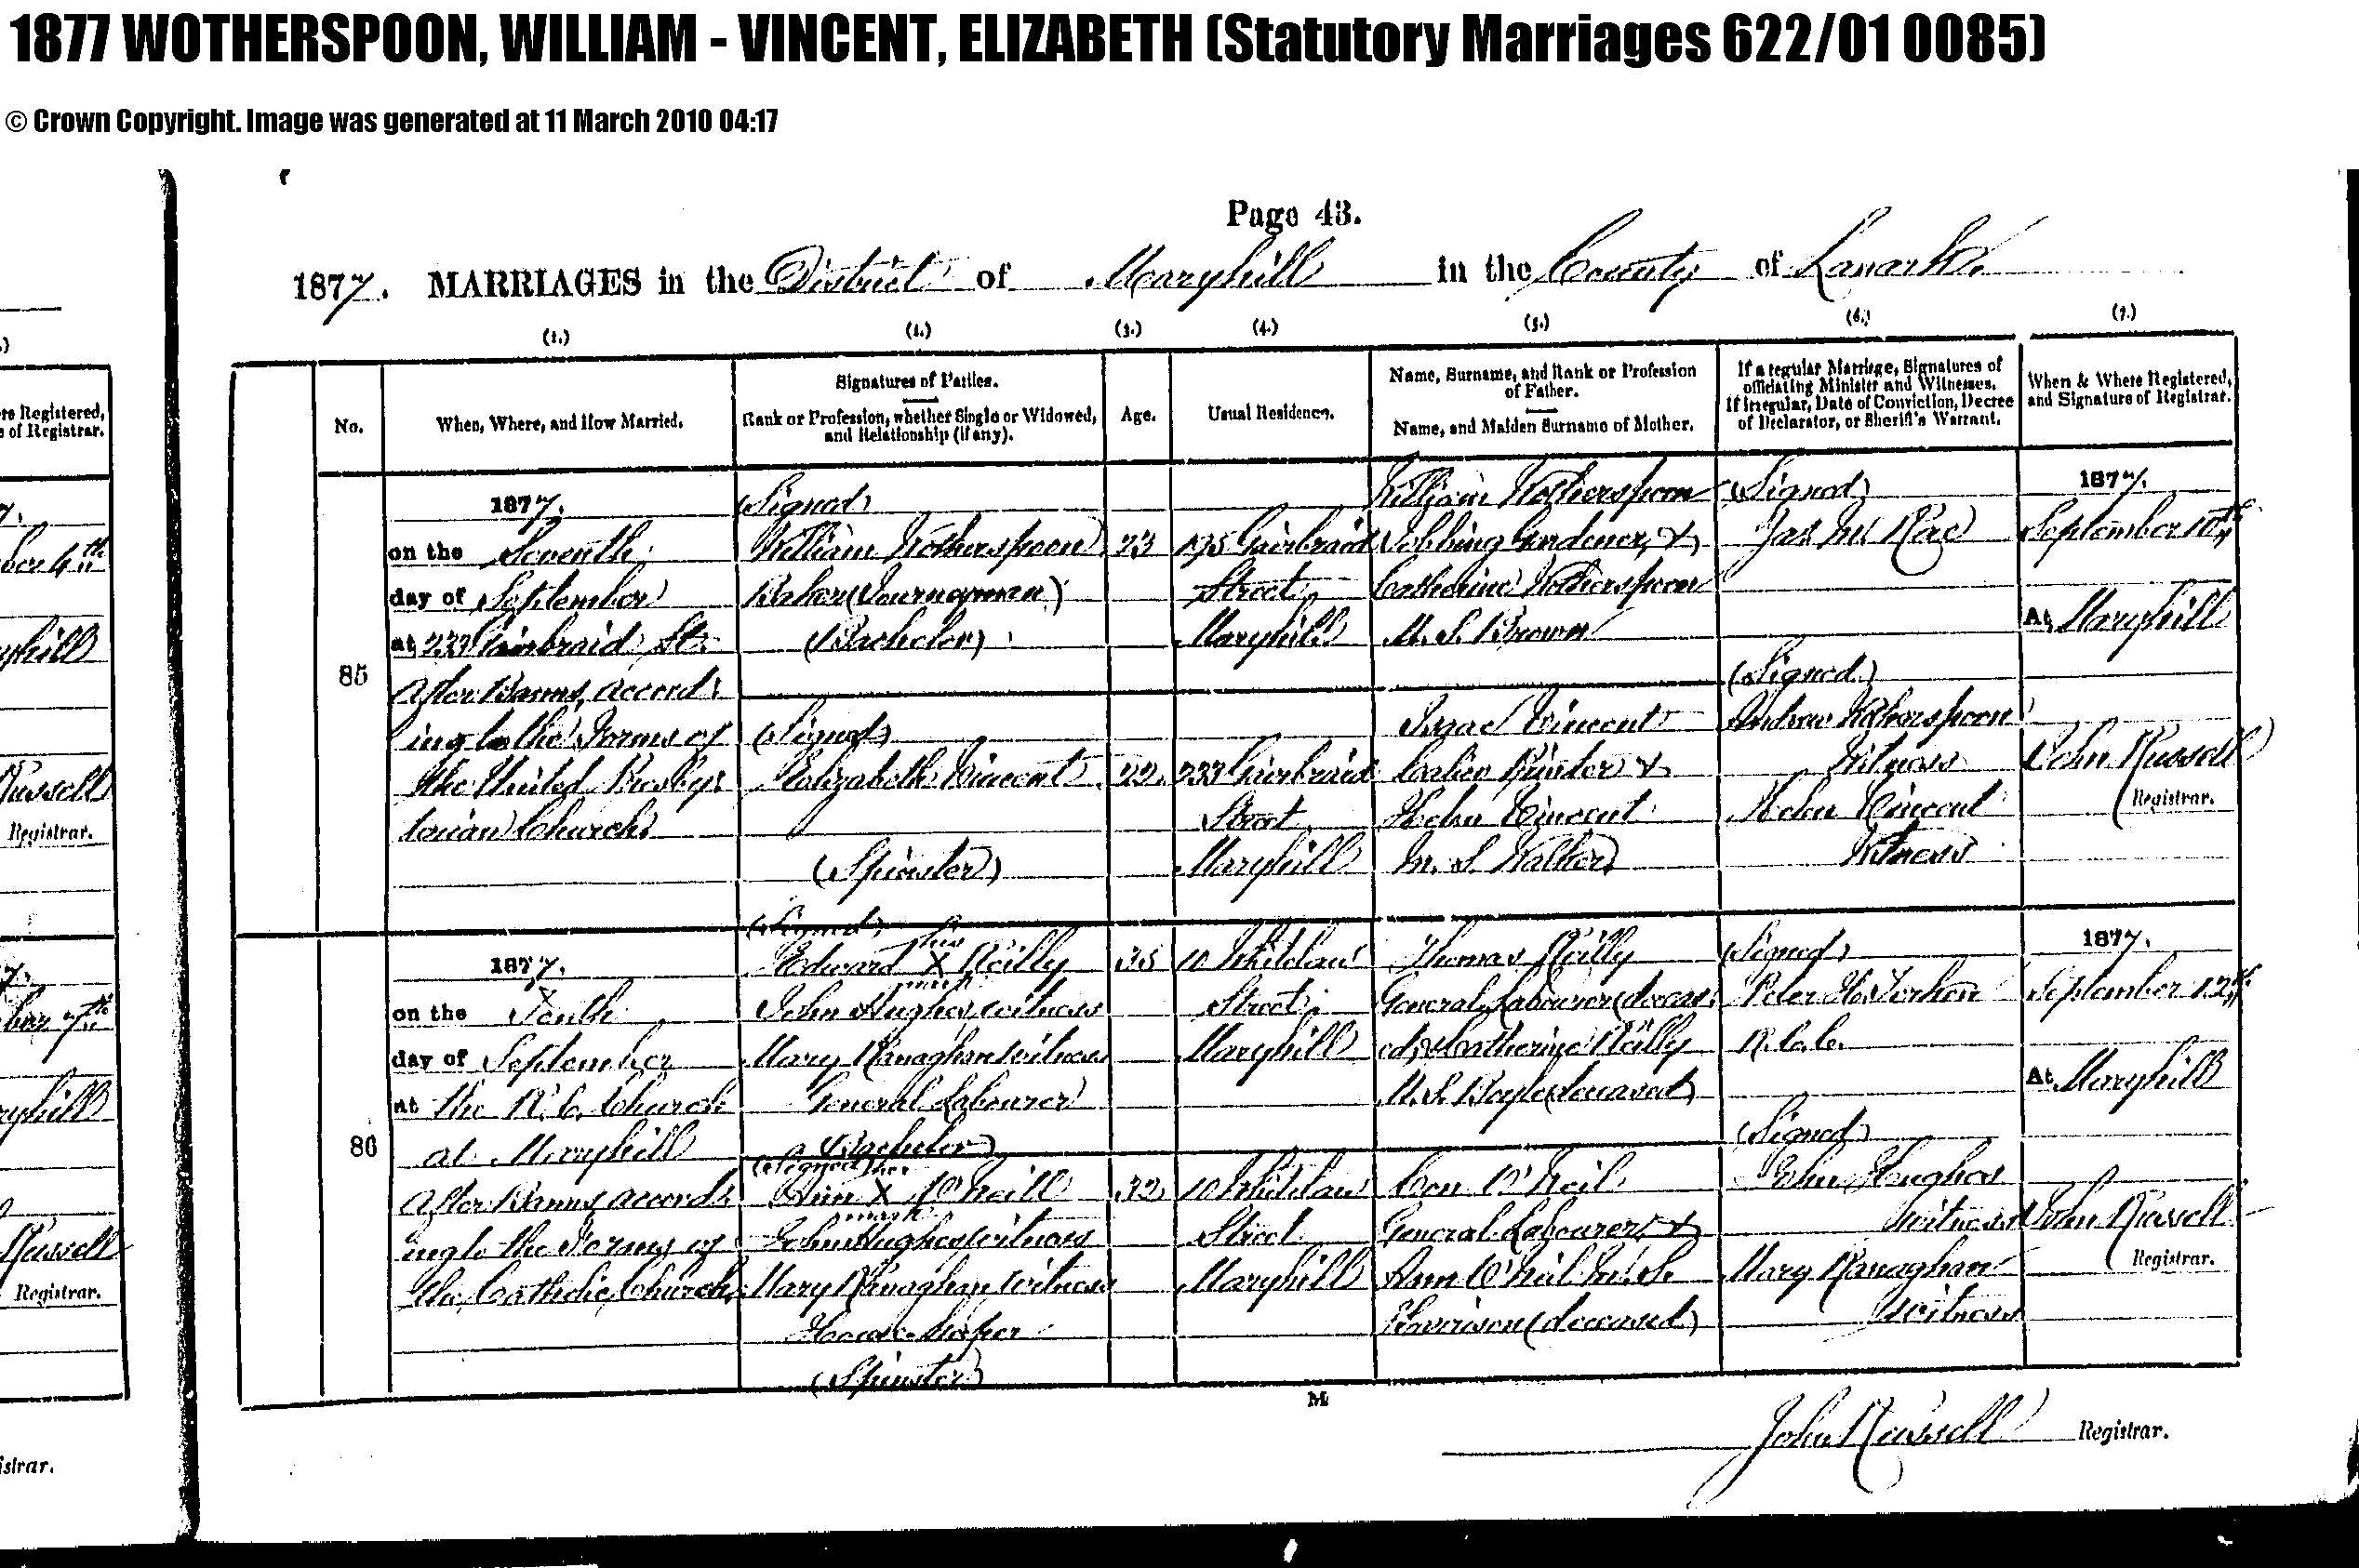 1877 WOTHERSPOON, WILLIAM - VINCENT, ELIZABETH (Statutory Marriages 622/01 0085)
© Crown Copyright. Image was generated at 11 March 2010 04:17
Page 43.
1877. MARRIAGES in the District of Maryhill in the County of Lanark.
(1.) (2.) (3.) (4.) (5.) (6.) (7.)
No.
When, Where, and How Married.
Signatures of Parties.
Rank or Profession, whether Single or Widowed,
and Relationship (if any).
Age.
Usual Residence.
Name, Surname, and Rank or Profession
of Father.
Name, and Maiden Surname of Mother.
If a regular Marriage, Signatures of
officiating Minister and Witnesses.
If irregular, Date of Conviction, Decree
of Declarator, or Sheriff's Warrant.
When & Where Registered,
and Signature of Registrar.
85
1877.
on the Seventh
day of September
at 233 Gairbraid St.
After Banns, accord
ing to the Forms of
the United Presby
terian Church
(Signed)
William Wotherspoon
Baker (Journeyman)
(Bachelor)
(Signed)
Elizabeth Vincent
(Spinster)
23
22
175 Gairbraid
Street
Maryhill
233 Gairbraid
Street
Maryhill
William Wotherspoon
Jobbing Gardener, &
Catherine Wotherspoon
M. S. Brown
Isaac Vincent
Calico Printer &
Helen Vincent
M. S. Walker
(Signed)
Jas Mc Rae
(Signed)
Andrew Wotherspoon
Witness
Helen Vincent
Witness
1877.
September 10th
At Maryhill
John Russell
Registrar.
86
1877.
on the Tenth
day of September
at the R. C. Church
at Maryhill
After Banns accord
ing to the Forms of
the Catholic Church
(Signed)
his
Edward X Reilly
mark
John Hughes, witness
Mary Managhan witness
General Labourer
(Bachelor)
(Signed) her
Ann X O'Neill
mark
John Hughes witness
Mary Managhan witness
House-keeper
(Spinster)
35
32
10 Whitelaw
Street
Maryhill
10 Whitelaw
Street
Maryhill
Thomas Reilly
General Labourer (deceas
ed) & Catherine Reilly
M. S. Boyle (deceased)
Con O'Neil
General Labourer &
Ann O'Neil M. S.
(deceased)
(Signed)
Peter
R. C. C.
(Signed)
John Hughes
witness
Mary Managhan
witness
1877.
September 12th
At Maryhill
John Russell
Registrar.
M
John Russell Registrar.
re Registered,
of Registrar.
ber 4th
Maryhill
Russell
Registrar.
Russell
Registrar.
istrar.